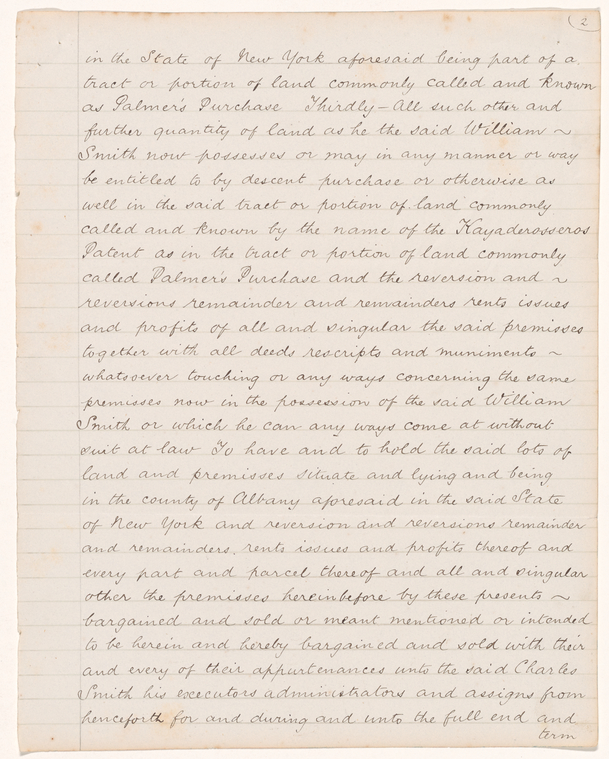 2
in the State of New York aforesaid being part of a
tract or portion of land commonly called and known
as Palmer's Purchase Thirdly – All such other and
further quantity of land as he the said William ~
Smith now possesses or may in any manner or way
be entitled to by descent purchase or otherwise as
well in the said tract or portion of land commonly
called and known by the name of the Kayaderosseros
Patent as in the tract or portion of land commonly
called Palmer's Purchase and the reversion and ~
reversions remainder and remainders rents issues
and profits of all and singular the said premisses
together with all deeds rescripts and muniments ~
whatsoever touching or any ways concerning the same
premisses now in the possession of the said William
Smith or which he can any ways come at without
suit at law To have and to hold the said lots of
land and premisses situate and lying and being
in the county of Albany aforesaid in the said State
of New York and reversion and reversions remainder
and remainders, rents issues and profits thereof and
every part and parcel thereof and all and singular
other the premisses hereinbefore by these presents ~
bargained and sold or meant mentioned or intended
to be herein and hereby bargained and sold with their
and every of their appurtenances unto the said Charles
Smith his executors administrators and assigns from
henceforth for and during and unto the full end and
term